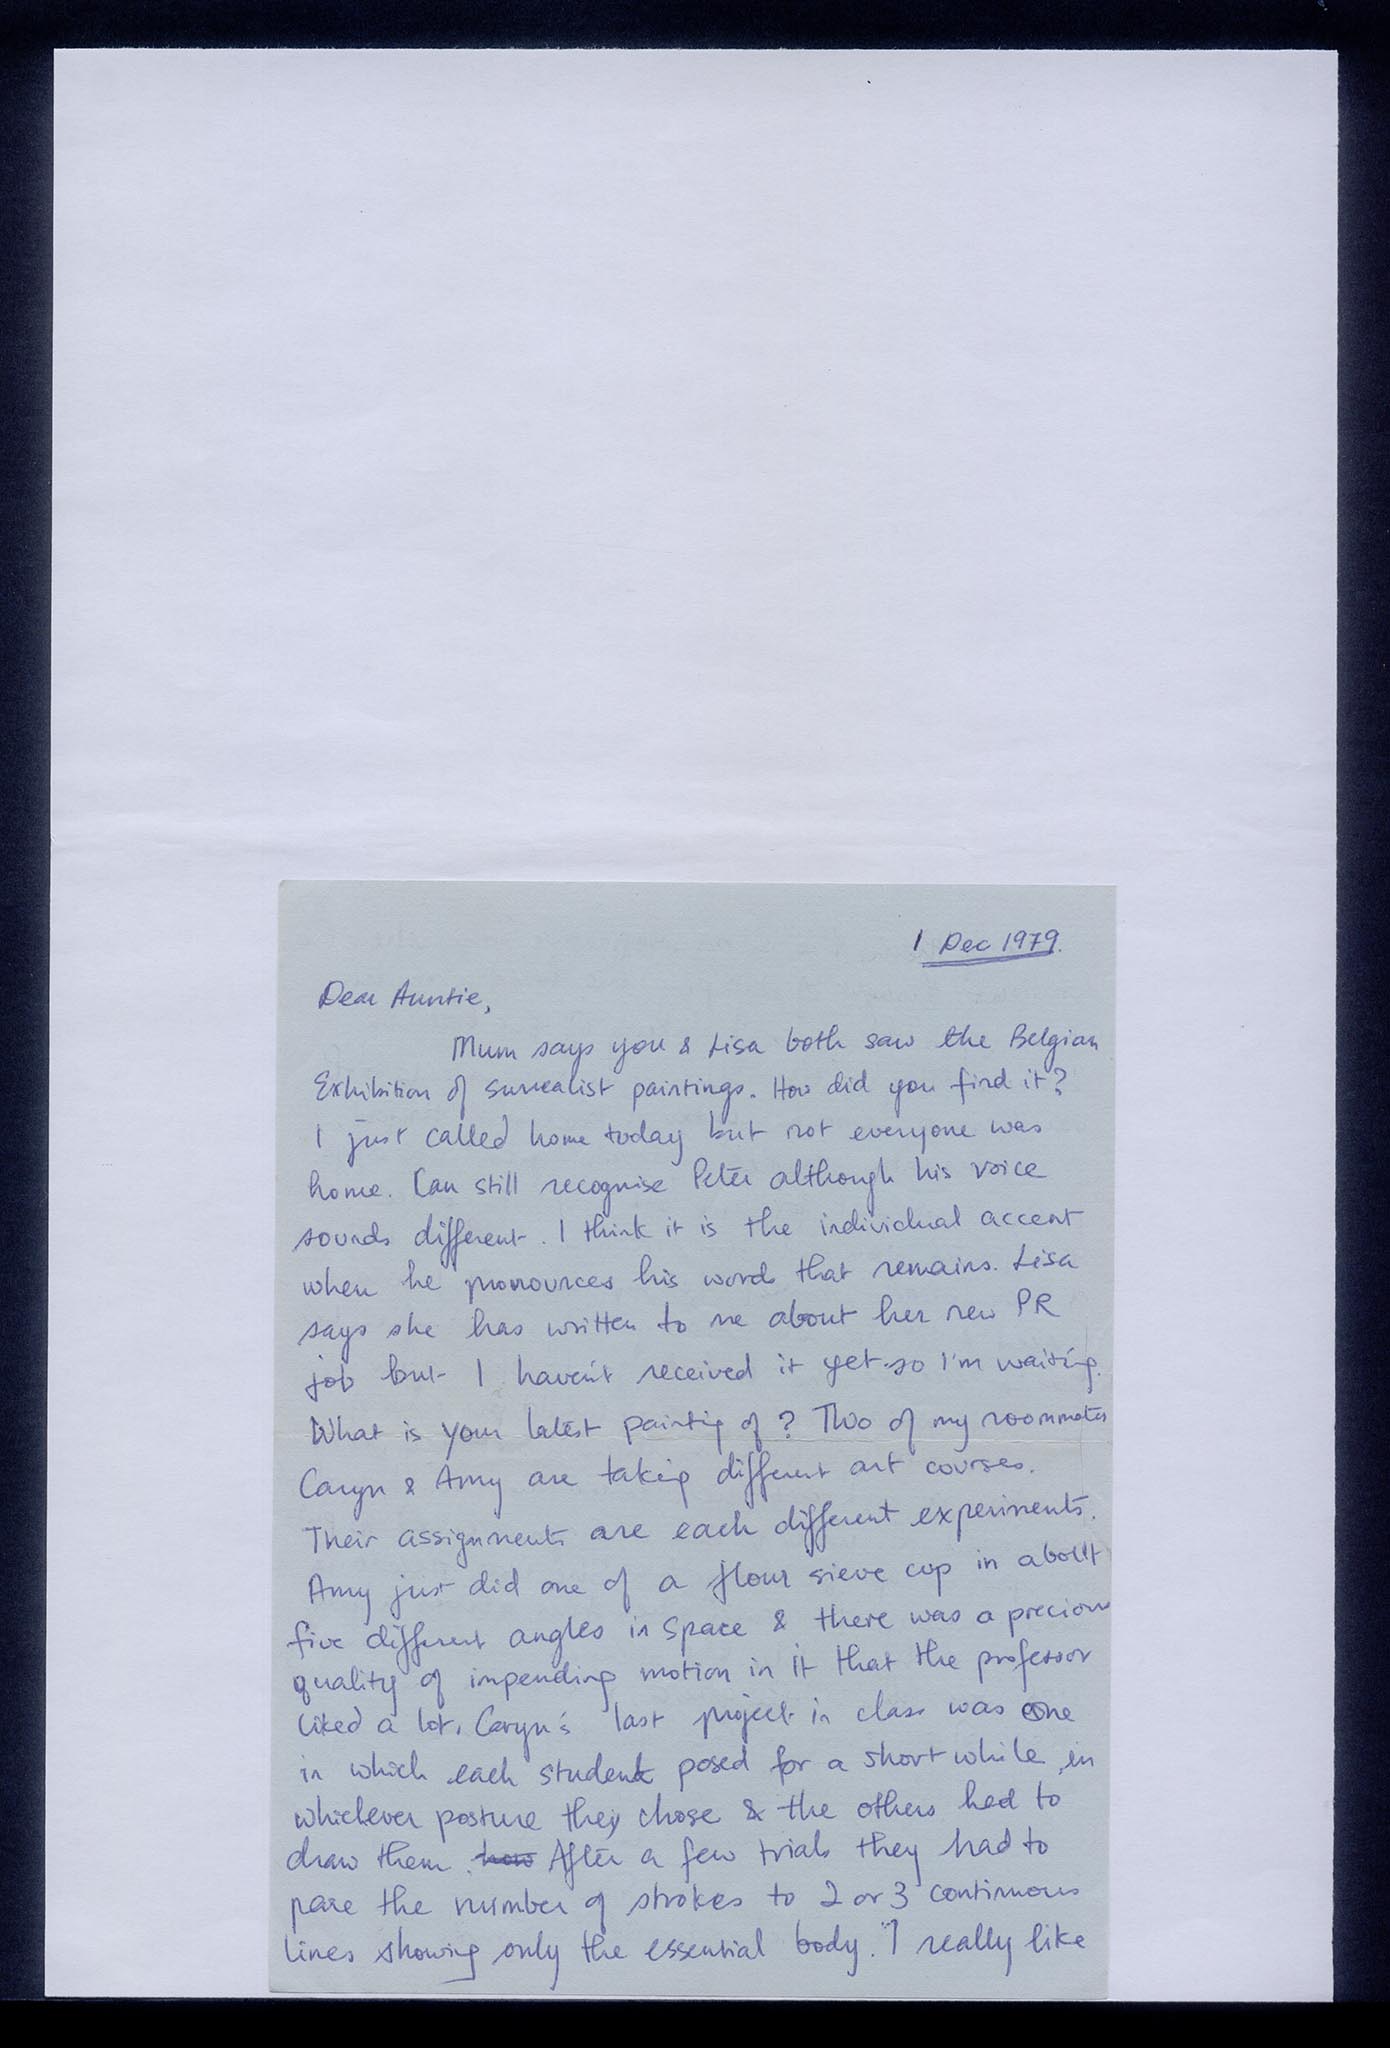 1 Dec 1979.
Dear Auntie,
Mum says you & Lisa both saw the Belgian
Exhibition of surrealist paintings. How did you find it?
I just called home today but not everyone was
home. Can still recognise Peter although his voice
sounds different. I think it is the individual accent
when he pronounces his words that remains. Lisa
says she has written to me about her new PR
job but I haven't received it yet so I'm waiting.
What is your latest painting of? Two of my roommates
Caryn & Amy are taking different art courses.
Their assignments are each different experiments.
Amy just did one of a flour sieve cup in about
five different angles in space & there was a precious
quality of impending motion in it that the professor
liked a lot. Caryn's last project in class was one
in which each student posed for a short while, in
whichever posture they chose & the others had to
draw them. how After a few trials they had to
pare the number of strokes to 2 or 3 continuous
lines showing only the essential body. I really like